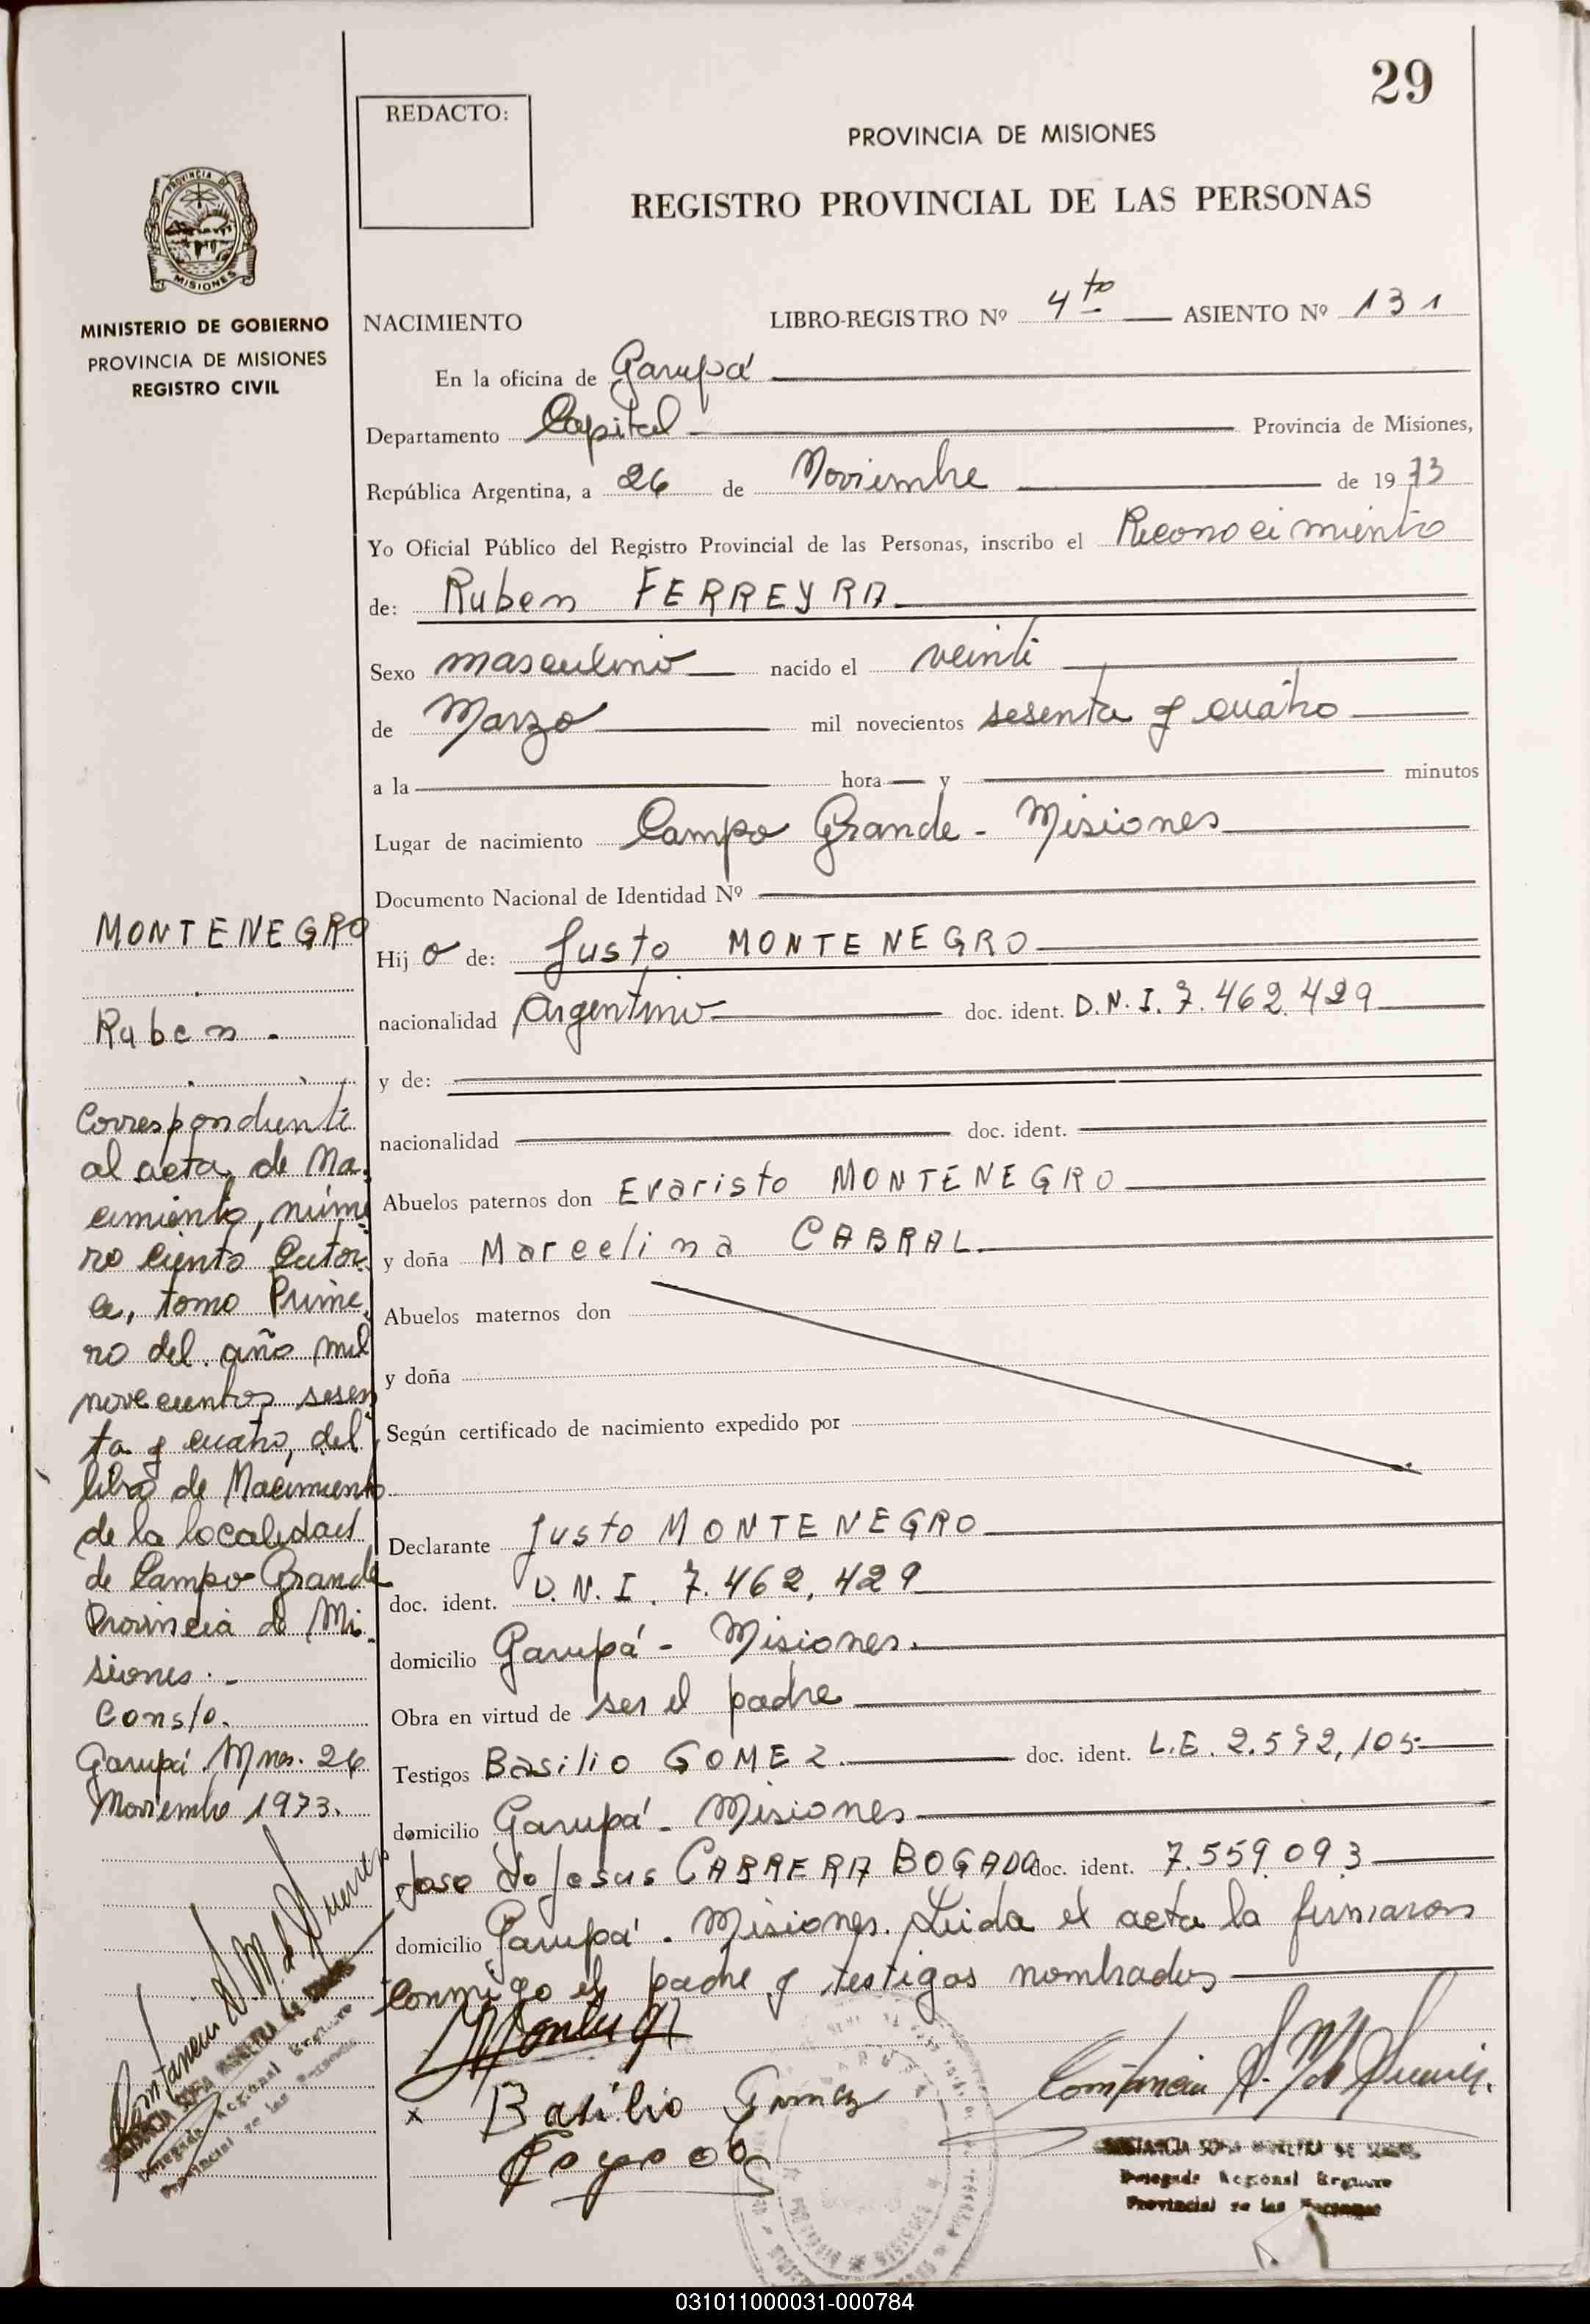 29
REDACTO:
PROVINCIA DE MISIONES
REGISTRO PROVINCIAL DE LAS PERSONAS
PROVINCIA DE
MISIONES
MINISTERIO DE GOBIERNO
PROVINCIA DE MISIONES
REGISTRO CIVIL
NACIMIENTO LIBRO-REGISTRO Nº 4to ASIENTO Nº 131
En la oficina de Garupá
Departamento Capital Provincia de Misiones,
República Argentina, a 26 de Noviembre de 1973
Yo Oficial Público del Registro Provincial de las Personas, inscribo el Reconocimiento
de: Ruben FERREYRA
Sexo masculino nacido el veinti
de Marzo mil novecientos sesenta y cuatro
a la hora y minutos
Lugar de nacimiento Campo Grande - Misiones
Documento Nacional de Identidad Nº
Hijo de: Justo MONTENEGRO
nacionalidad Argentino doc. ident. D.N.I. 7.462.429
y de:
nacionalidad doc. ident.
Abuelos paternos don Evaristo MONTENEGRO
y doña Marcelina CABRAL.
Abuelos maternos don
y doña
Según certificado de nacimiento expedido por
Declarante Justo MONTENEGRO
doc. ident. D.N.I. 7.462,429
domicilio Garupá - Misiones.
Obra en virtud de ser el padre
Testigos Basilio GOMEZ. doc. ident. L.E. 2.572,105-
domicilio Garupá - Misiones
Jose De Jesus CABRERA BOGADO doc. ident. 7.559.093
domicilio Garupá - Misiones. Leida el acta la firmaron
conmigo el padre y testigos nombrados
x Basilio Gomez
Delegada Regional Registro
Provincial de las Personas
MONTENEGRO
Ruben.
Correspondiente
al acta, de Na-
cimiento, núme-
ro ciento Cator-
ce, tomo Prime-
ro del año mil
novecientos sesen
ta y cuatro, del
libro de Nacimiento
de la localidad
de Campo Grande
Provincia de Mi-
siones.-
Consto.
Garupá Mnes. 26
Noviembre 1973.
Delegada Regional Registro
Provincial de las Personas
031011000031-000784